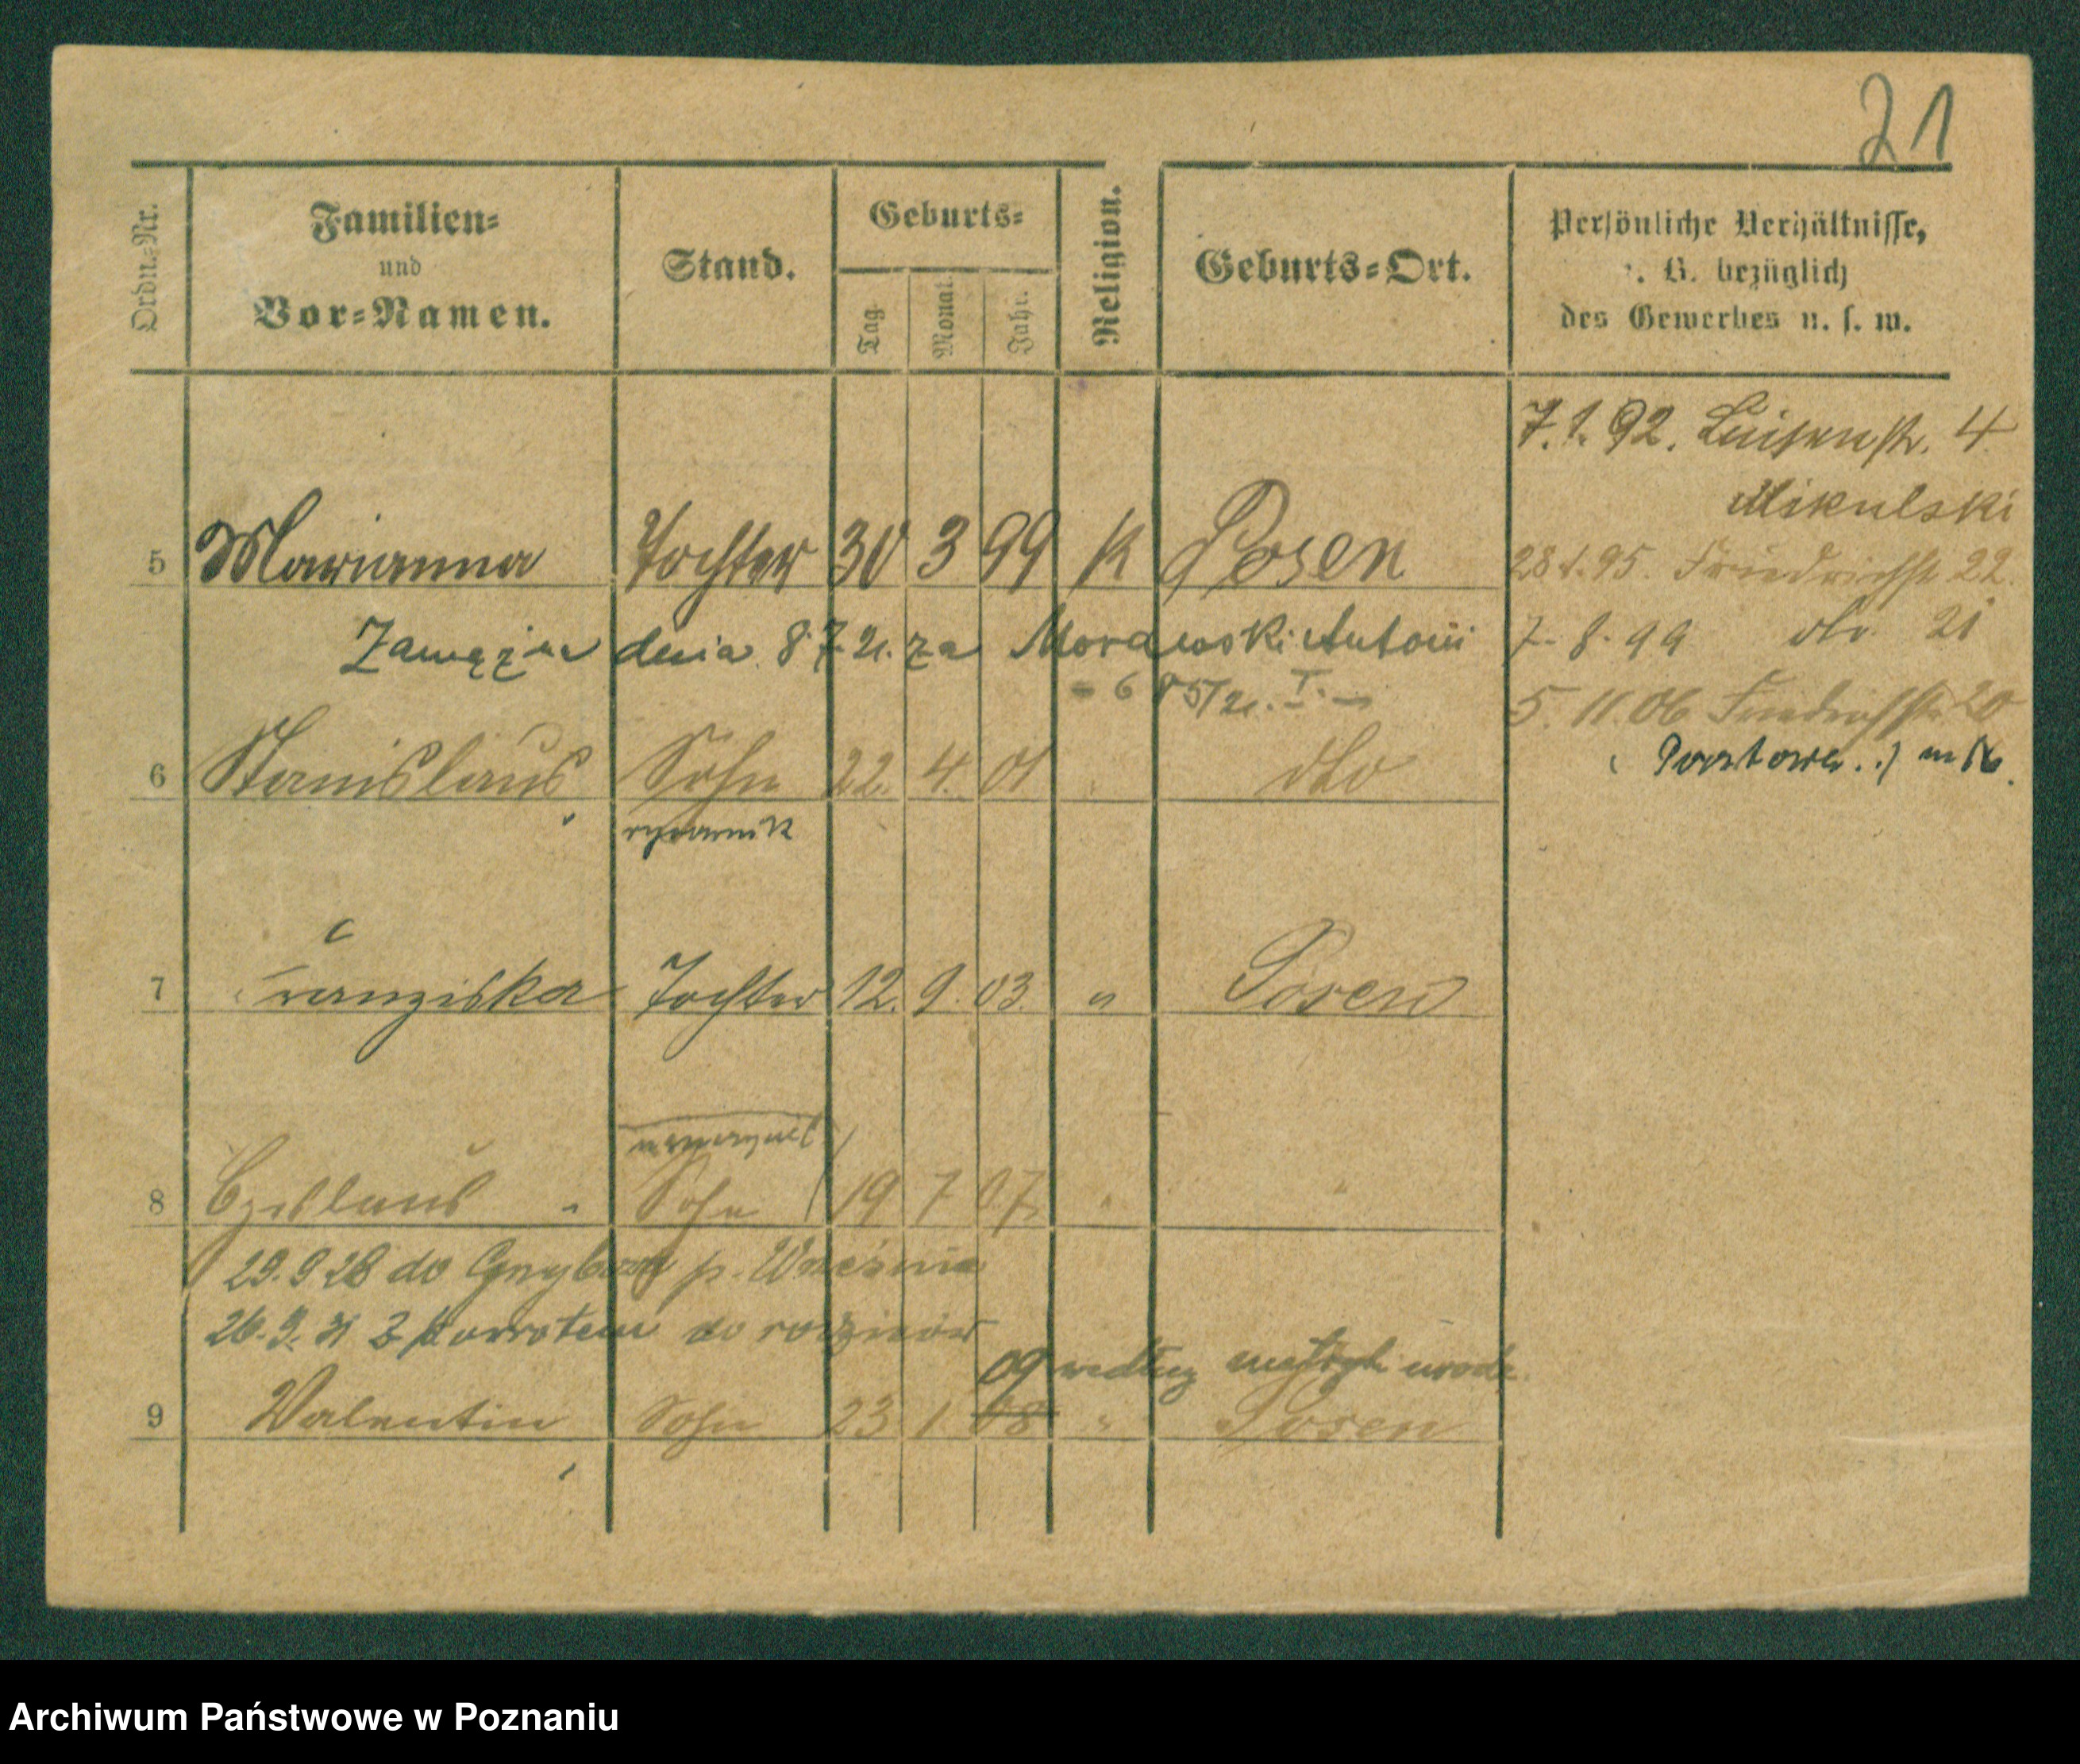 21
Ordn.-Nr.
Familien-
und
Vor-Namen.
Stand.
Geburts-
Tag
Monat
Jahr.
Religion.
Geburts-Ort.
Persönliche Verhältnisse,
z. B. bezüglich
des Gewerbes u. s. w.
7.1.92. Luisenstr. 4
Mikulski
5 Marianna Tochter 30 3 99 K Posen
28.1.95. Friedrichst 22.
Zamężna dnia 8.7.21. za Morawski Antoni
7. 8. 99 dto. 21
5. 11. 06 Friedrichstr 20
6 Stanislaus Sohn 22. 4. 01 " dto
7 Franziska Tochter 12. 9. 03. " Posen
8 Czeslaus " Sohn 19 7 07 " "
29.9 28 do p. Września
26.3. 31 z powrotem do rodziców
09 według metryk urodz.
9 Valentin Sohn 23 1 08 " Posen
Archiwum Państwowe w Poznaniu